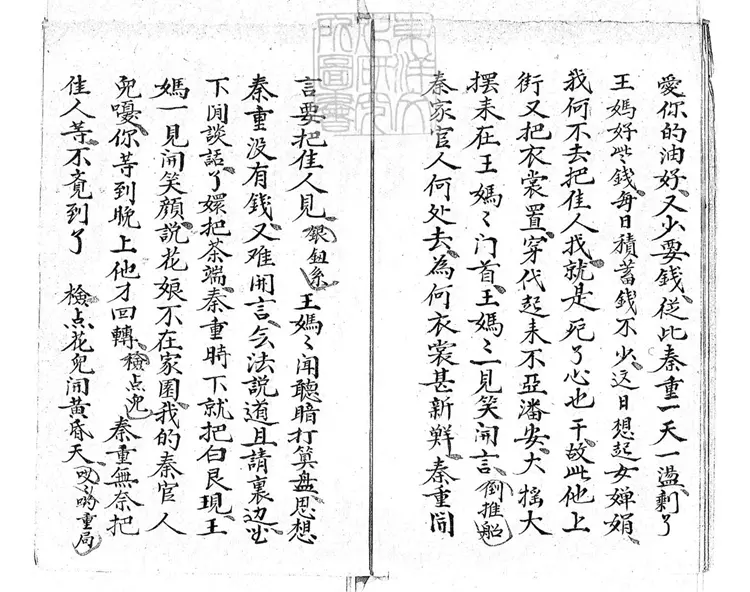 愛你的油好又少要錢従此秦重一天一盪剩了
王媽好些錢每日積蓄錢不少这日想起女嬋娟
我何不去把佳人找就是死了心也干故此他上
街又把衣裳置穿代起来不亞潘安大摇大
摆来在王媽〻门首王媽〻一見笑開言倒推船
秦家官人何处去為何衣裳甚新鮮秦重開
言要把佳人見銀鈕糸王媽〻闻聽暗打算盘思想
秦重没有錢又难開言令法説道且請裏边坐
下閒談話了嬛把茶端秦重時下就把白艮現王
媽一見開笑顔説花娘不在家園我的秦官人
兒嚘你等到晚上他才回轉檢点兒秦重無奈把
佳人等不覔到了檢点花兒開黄昏天重局